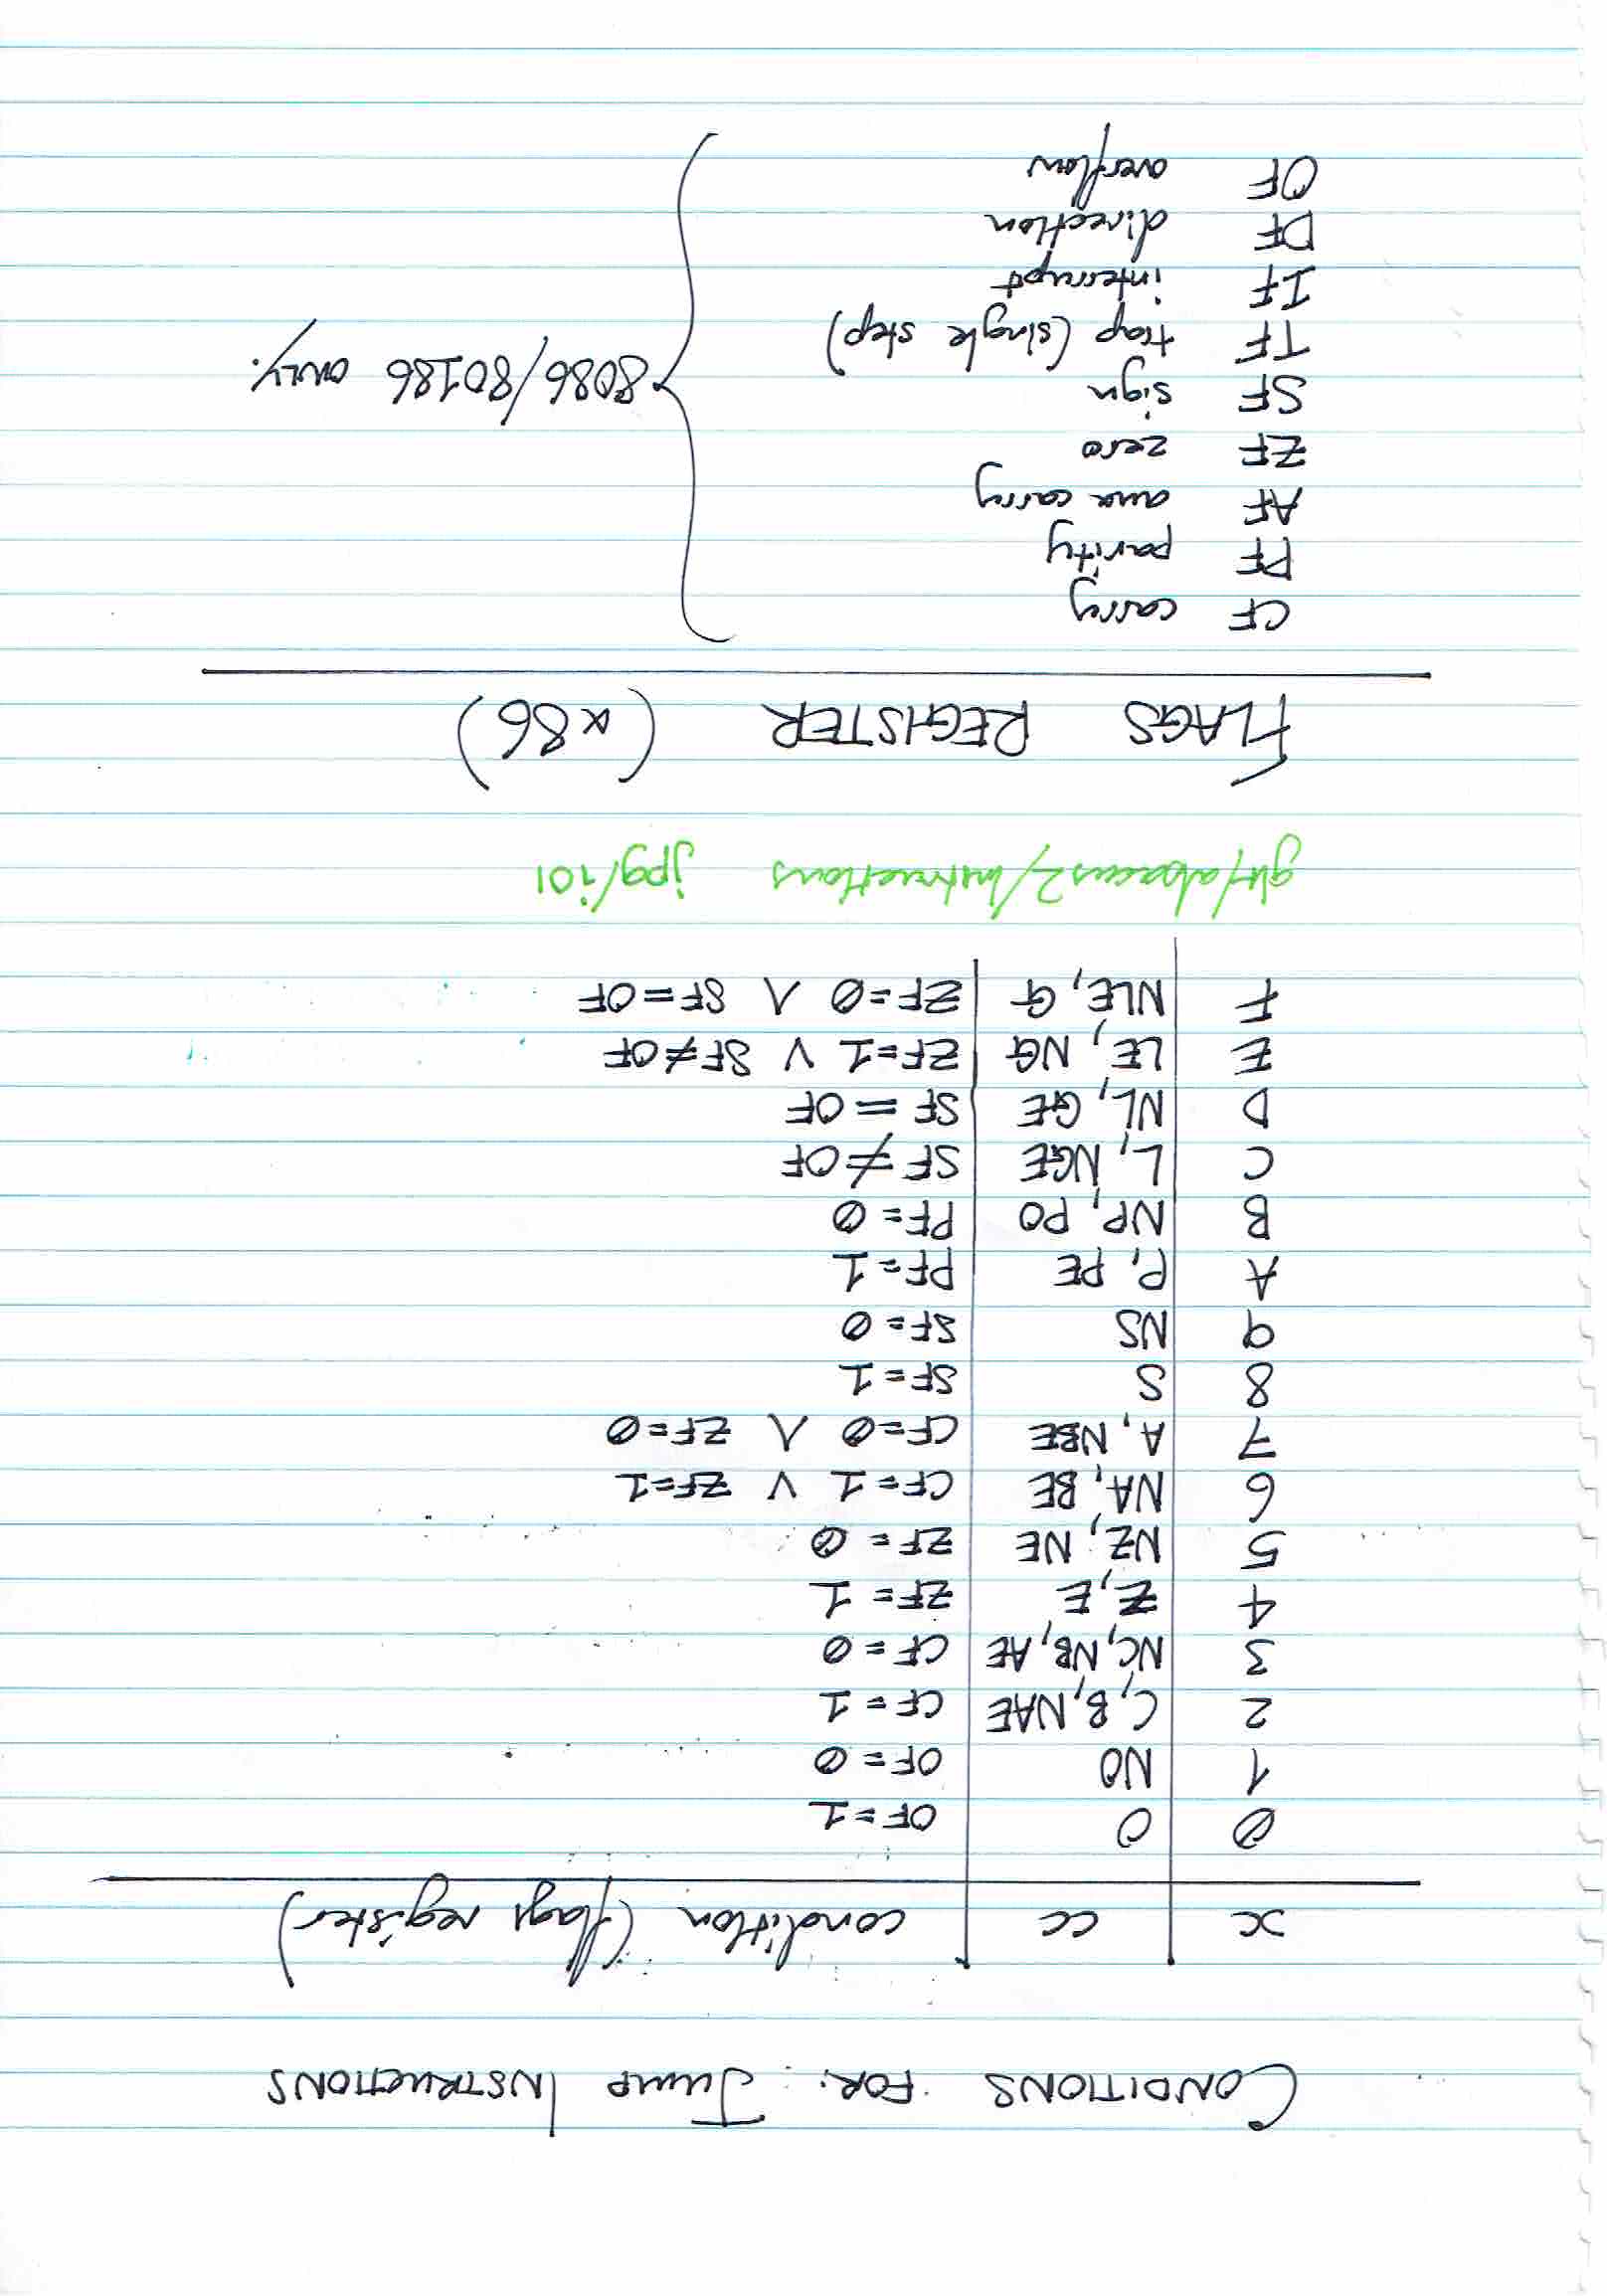 CONDITIONS FOR JUMP INSTRUCTIONS
x cc condition (flags register)
0 O OF=1
1 NO OF=0
2 C, B, NAE CF=1
3 NC, NB, AE CF=0
4 Z, E ZF=1
5 NZ, NE ZF=0
6 NA, BE CF=1 ∨ ZF=1
7 A, NBE CF=0 ∧ ZF=0
8 S SF=1
9 NS SF=0
A P, PE PF=1
B NP, PO PF=0
C L, NGE SF≠OF
D NL, GE SF=OF
E LE, NG ZF=1 ∨ SF≠OF
F NLE, G ZF=0 ∧ SF=OF
/abacus2/Instructions jpg/i01
FLAGS REGISTER (x86)
CF carry
PF parity
AF aux carry
ZF zero
SF sign
TF trap (single step)
IF interrupt
DF direction
OF overflow
8086/80186 ONLY.